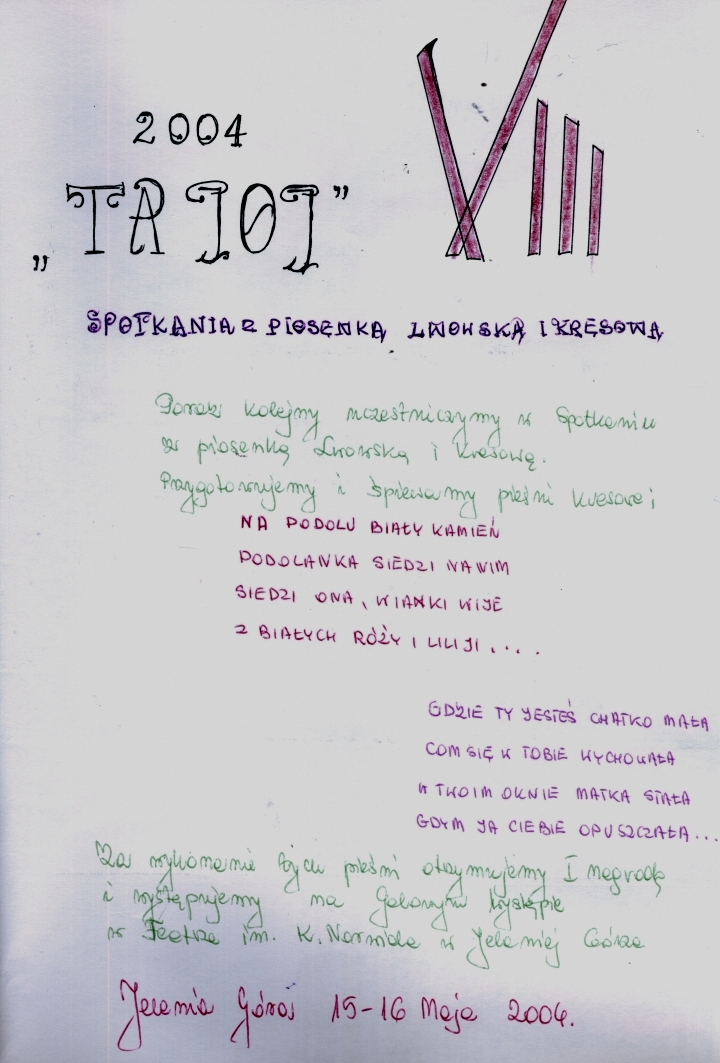 2004
VIII
„TA JOJ”
SPOTKANIA Z PIOSENKĄ LWOWSKĄ I KRESOWĄ
Poraz kolejny uczestniczymy w Spotkaniu
z piosenką Lwowską i Kresową.
Przygotowujemy i śpiewamy pieśni kresowe;
NA PODOLU BIAŁY KAMIEŃ
PODOLANKA SIEDZI NA NIM
SIEDZI ONA, WIANKI WIJE
Z BIAŁYCH RÓŻY I LILIJI....
GDZIE TY JESTEŚ CHATKO MAŁA
COM SIĘ W TOBIE WYCHOWAŁA
W TWOIM OKNIE MATKA STAŁA
GDYM JA CIEBIE OPUSZCZAŁA...
Za wykonanie tych pieśni otrzymujemy I nagrodę
i występujemy na Galowym Występie
w Teatrze im. K. Norwida w Jeleniej Górze
Jelenia Góra 15-16 Maja 2004.